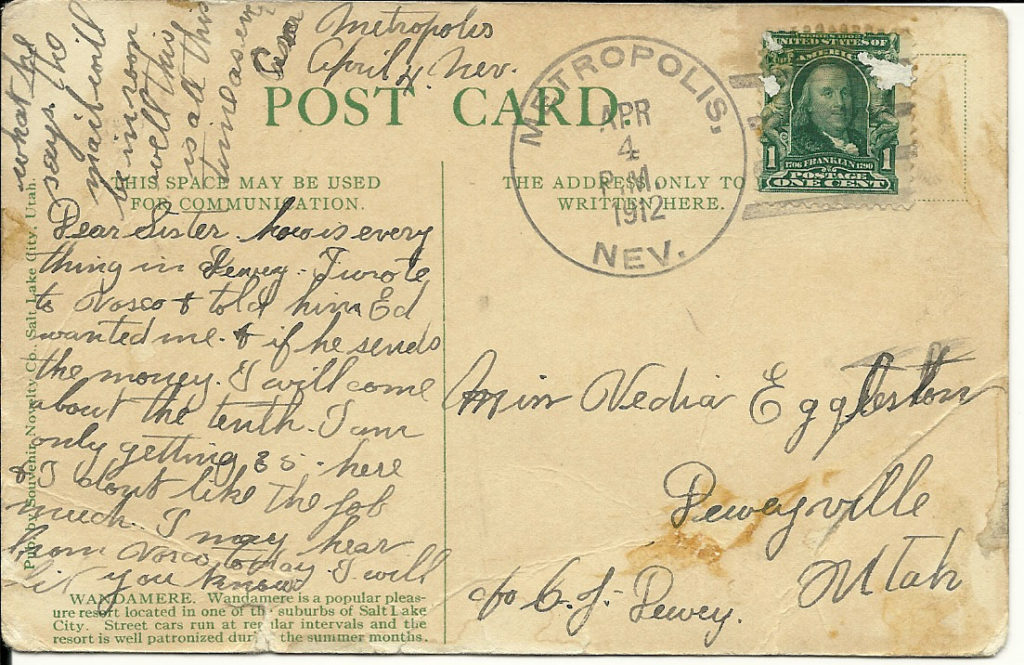 Metropolis
April 4, Nev.
POST CARD
THIS SPACE MAY BE USED
FOR COMMUNICATION.
THE ADDRESS ONLY TO
WRITTEN HERE.
METROPOLIS,
APR
4
P.M.
1912
NEV.
SERIES 1902
UNITED STATES OF
AMERICA
1706 FRANKLIN 1790
1 POSTAGE 1
ONE CENT
Dear Sister. how is every
thing in Dewey. I wrote
to Vosco & told him Ed
wanted me. & if he sends
the money. I will come
about the tenth. I am
only getting 35. here
& I dont like the job
much. I may hear
from Vosco to day. I will
let you know
what he
says. ho
mail will
be in soon
well this
is all this
time as ever
Miss Vedia Eggleston
Deweyville
Utah
c/o C. J. Dewey.
Pub. by Souvenir Novelty Co. Salt Lake City, Utah.
WANDAMERE. Wandamere is a popular pleas-
ure resort located in one of the suburbs of Salt Lake
City. Street cars run at regular intervals and the
resort is well patronized during the summer months.